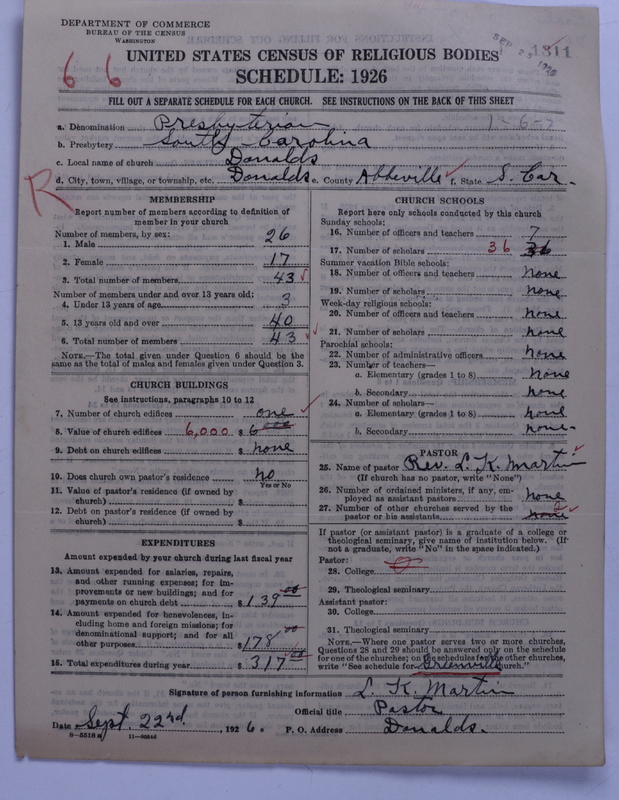 DEPARTMENT OF COMMERCE
BUREAU OF THE CENSUS
WASHINGTON
SEP 23 1926
1311
UNITED STATES CENSUS OF RELIGIOUS BODIES
SCHEDULE: 1926
66
FILL OUT A SEPARATE SCHEDULE FOR EACH CHURCH. SEE INSTRUCTIONS ON THE BACK OF THIS SHEET
1-6-7
a. Denomination Presbyterian
b. Presbytery South Carolina
c. Local name of church Donalds
d. City, town, village, or township, etc. Donalds e. County Abbeville f. State S. Car.
R
MEMBERSHIP
Report number of members according to definition of member in your church
Number of members, by sex:
1. Male 26
2. Female 17
3. Total number of members 43
Number of members under and over 13 years old:
4. Under 13 years of age 3
5. 13 years old and over 40
6. Total number of members 43
NOTE.—The total given under Question 6 should be the same as the total of males and females given under Question 3.
CHURCH BUILDINGS
See instructions, paragraphs 10 to 12
7. Number of church edifices one
8. Value of church edifices 6,000 $ 6000
9. Debt on church edifices $ none
10. Does church own pastor's residence? no
Yes or No
11. Value of pastor's residence (if owned by church) $
12. Debt on pastor's residence (if owned by church) $
EXPENDITURES
Amount expended by your church during last fiscal year
13. Amount expended for salaries, repairs, and other running expenses; for improvements or new buildings; and for payments on church debt $ 139 00
14. Amount expended for benevolences, including home and foreign missions; for denominational support; and for all other purposes $ 178 00
15. Total expenditures during year $ 317 00
CHURCH SCHOOLS
Report here only schools conducted by this church
Sunday schools:
16. Number of officers and teachers 7
17. Number of scholars 36 36
Summer vacation Bible schools:
18. Number of officers and teachers none
19. Number of scholars none
Week-day religious schools:
20. Number of officers and teachers none
21. Number of scholars none
Parochial schools:
22. Number of administrative officers none
23. Number of teachers—
a. Elementary (grades 1 to 8) none
b. Secondary none
24. Number of scholars—
a. Elementary (grades 1 to 8) none
b. Secondary none
PASTOR
25. Name of pastor Rev. L. K. Martin
(If church has no pastor, write "None")
26. Number of ordained ministers, if any, employed as assistant pastors none
27. Number of other churches served by the pastor or his assistants none
If pastor (or assistant pastor) is a graduate of a college or theological seminary, give name of institution below. (If not a graduate, write "No" in the space indicated.)
Pastor:
28. College
29. Theological seminary
Assistant pastor:
30. College
31. Theological seminary
NOTE.—Where one pastor serves two or more churches, Questions 28 and 29 should be answered only on the schedule for one of the churches; on the schedules for the other churches, write "See schedule for Greenville church."
Signature of person furnishing information L. K. Martin
Official title Pastor
Date Sept. 22nd, 1926. P. O. Address Donalds.
8-5518a 11-9084d